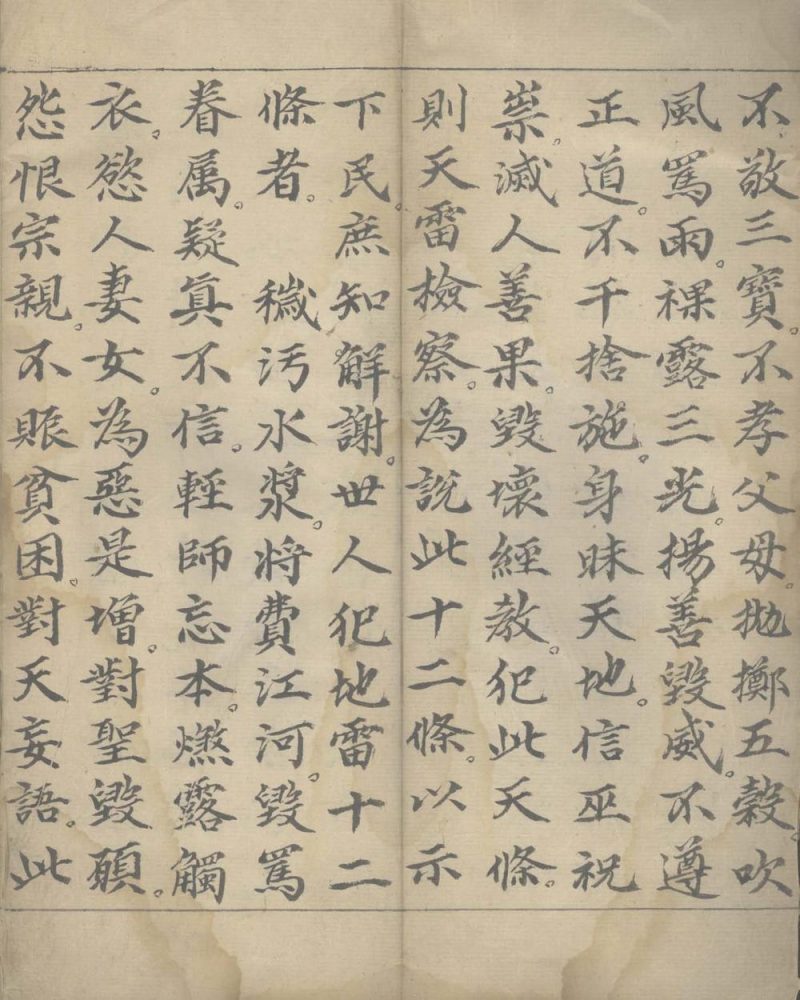 不敬三寶。不孝父母。拋擲五穀。吹
風罵雨。裸露三光。揚善毀威。不遵
正道。不千捨施。身昧天地。信巫祝
祟。滅人善果。毀壞經教。犯此天條。
則天雷檢察。為說此十二條。以示
下民。庶知解謝。世人犯地雷十二
條者。 穢污水漿。將費江河。毀罵
眷属。疑眞不信。輕師忘本。燃露觸
衣。慾人妻女。為惡是增。對聖毀願。
怨恨宗親。不賑貧困。對天妄語。此